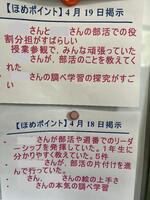 【ほめポイント】4月19日掲示
さんと さんの部活での役
割分担がすばらしい
授業参観で、みんな頑張っていた
さんが、部活のことを教えてく
れた
さんの調べ学習の探究がすご
い
【ほめポイント】4月18日掲示
さんが部活や週番でのリーダ
ーシップを発揮していた。1年生に
分かりやすく教えていた。5件
さんが、部活の片付けを進
んで行っていた。
さん、 さんの絵の上手さ
さんの本気の調べ学習